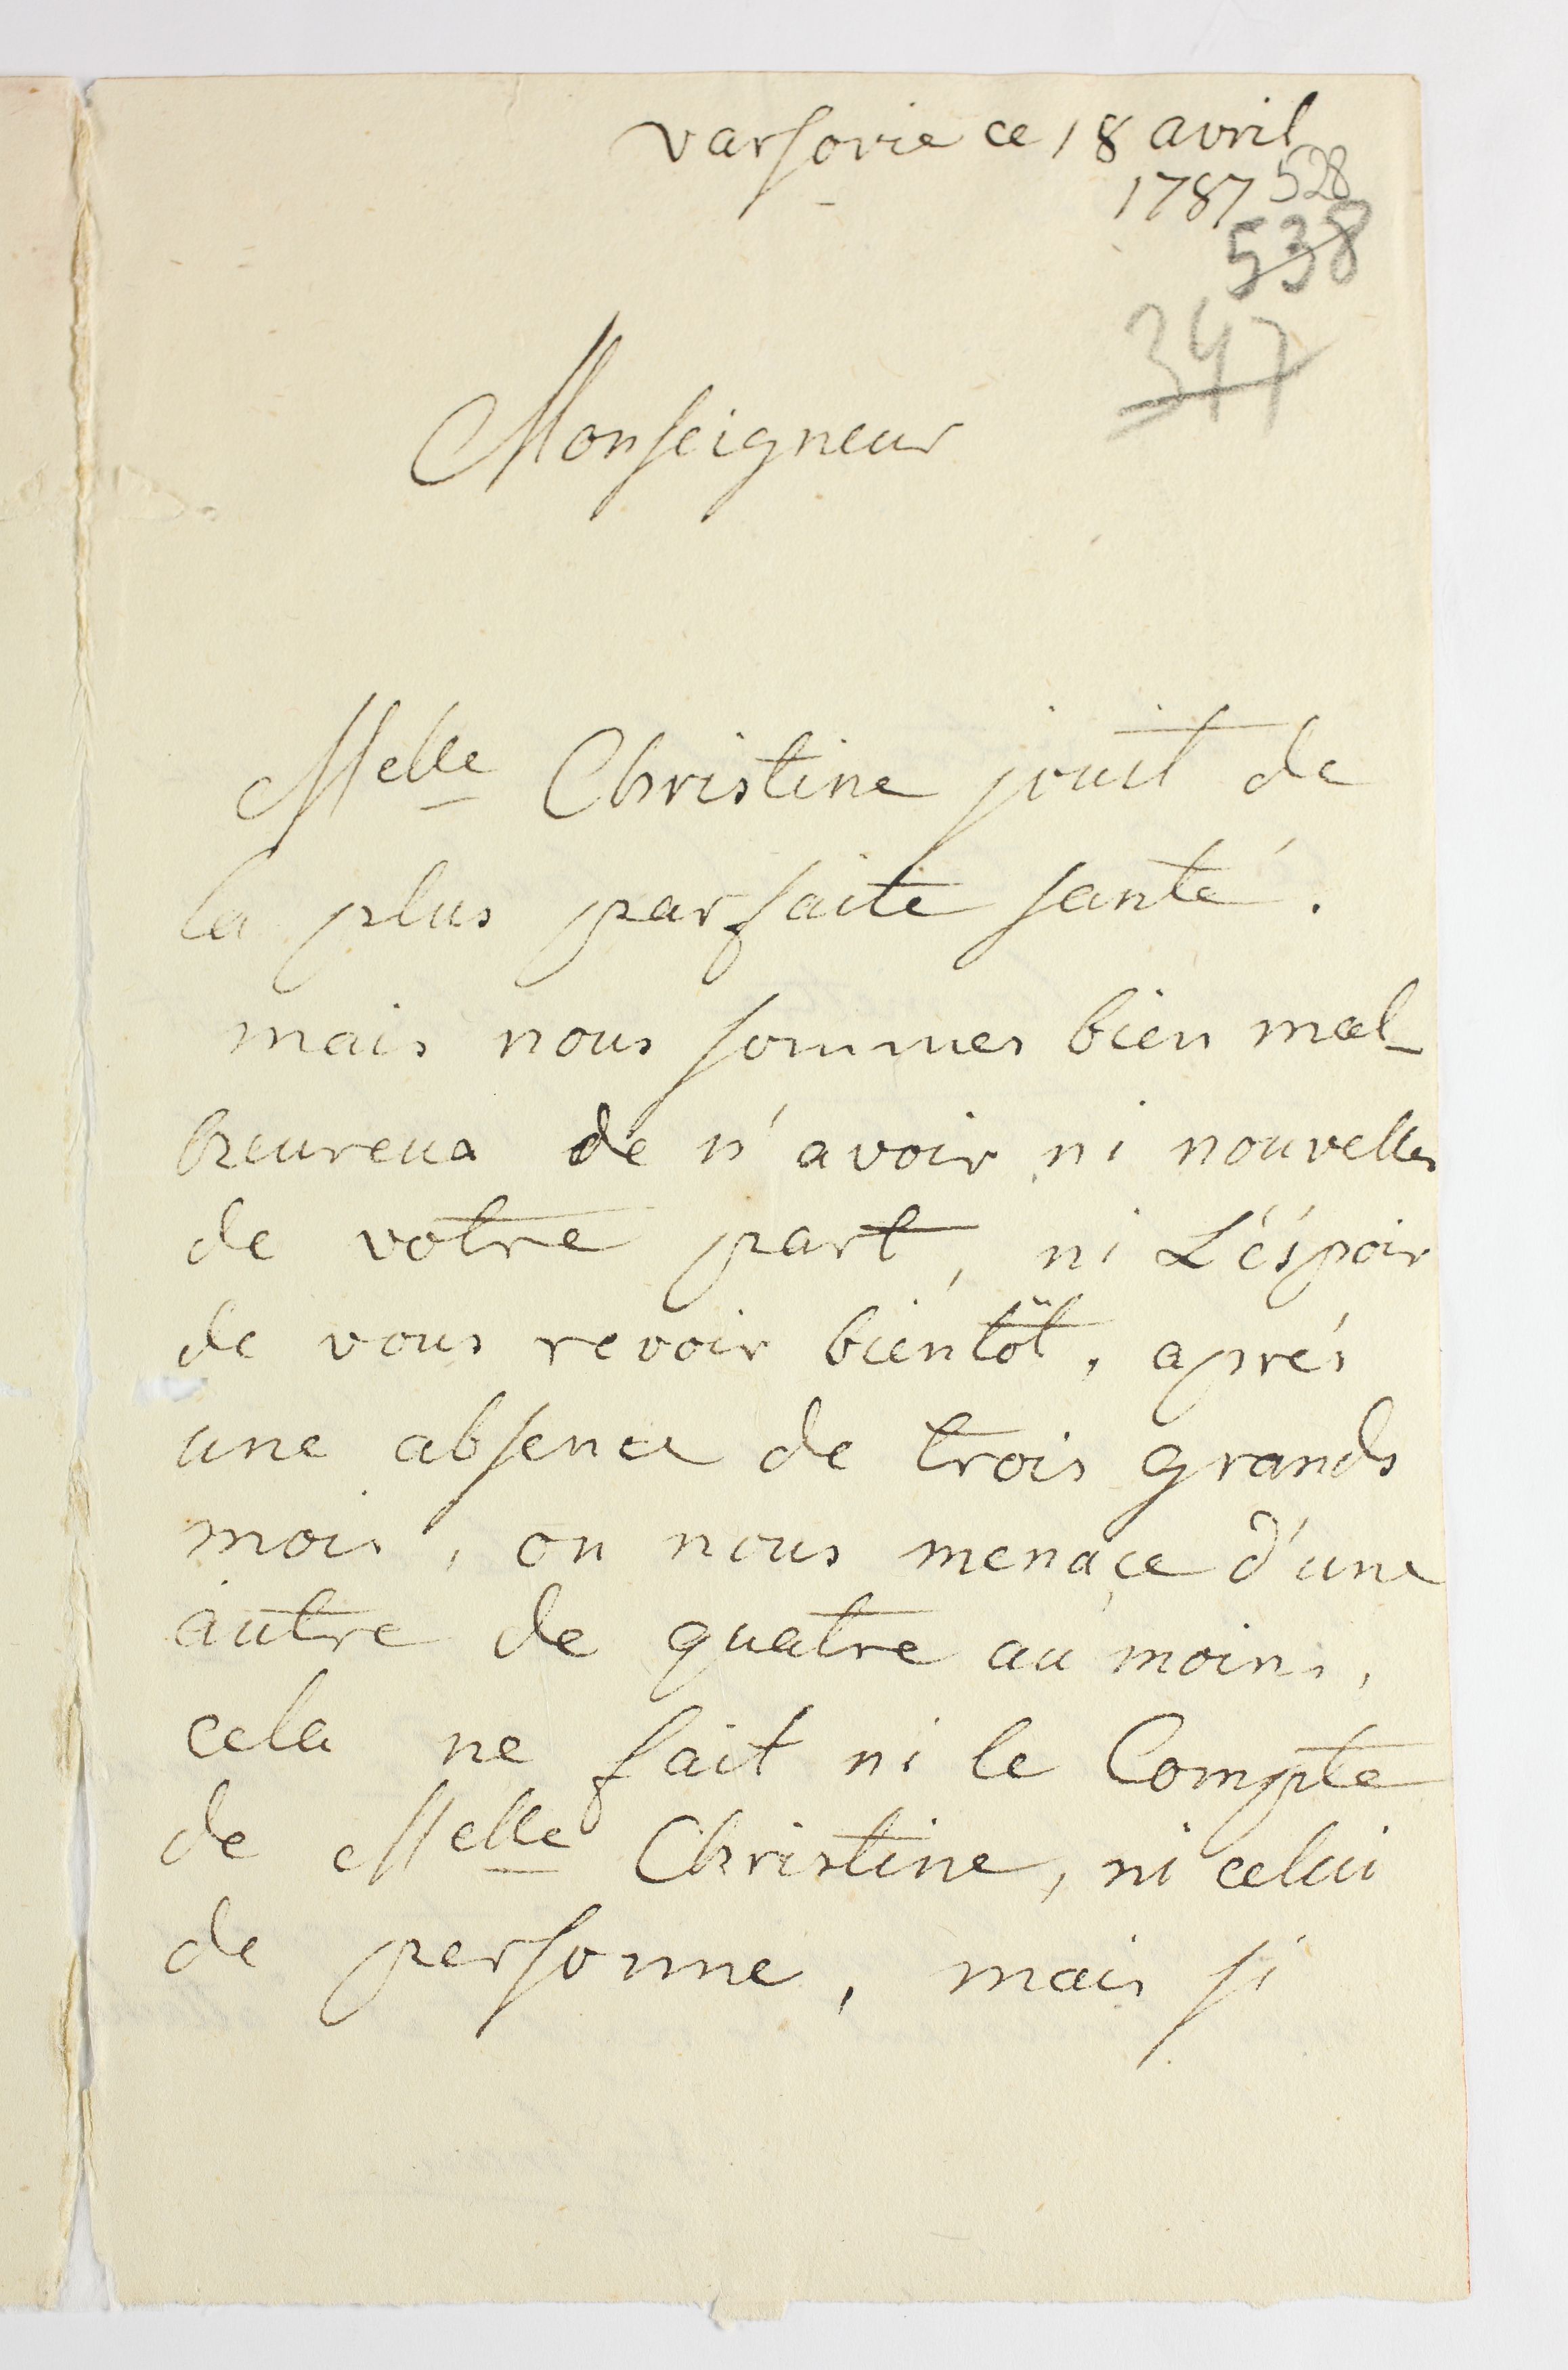 varsovie ce 18 avril
1787 528
538
347
Monseigneur
Melle Christine jouit de
la plus parfaite santé.
mais nous sommes bien mal-
heureux de n'avoir ni nouvelles
de votre part, ni L'éspoir
de vous revoir bientôt, aprés
une absence de trois grands
mois, on nous menaçe d'une
autre de quatre au moins,
cela ne fait ni le Compte
de Melle Christine, ni celui
de personne, mais si